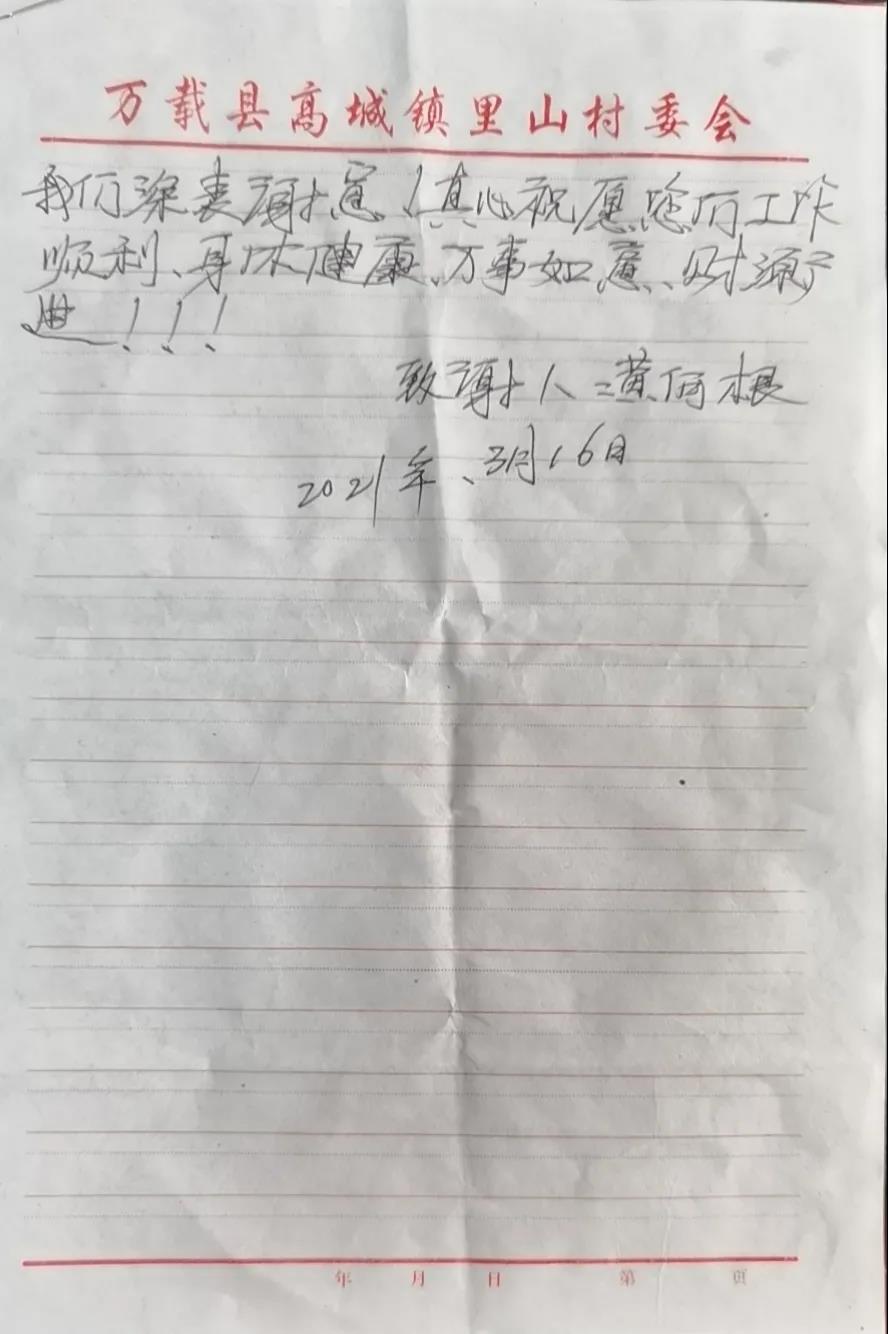 万载县高城镇里山村委会
我们深表谢意！真心祝愿您们工作
顺利、身体健康、万事如意、财源广
进！！！
致谢人：黄何根
2021年、3月16日
年 月 日 第 页